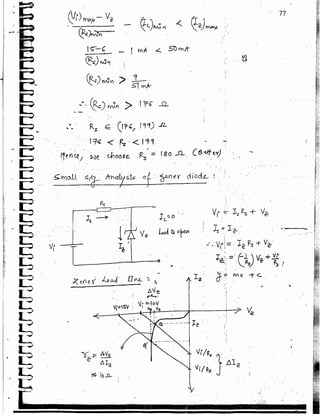 77
(Vi)max - Vz / (Rs)min - (IL)min < (Iz)max
15-6 / (Rs)min - 1 mA < 50mA
(Rs)min > 9 / 51 mA
∴ (Rs)min > 176 Ω
∴ Rs ∈ (176, 199) Ω
176 < Rs < 199
Hence, we choose Rs = 180 Ω (Better)
Small sig. Analysis of zener diode :
Rs
Is
IL=0
Iz
Vz
Load is open
Vi
Vi = Is Rs + Vz
Is = Iz
∴ Vi = Iz Rs + Vz
Iz = (-1/Rs) Vz + Vi/Rs
y = mx + c
Zener Load line :
ΔVz
Vi=15V
Vi=10V
Iz
Vz
Q
Iz
Q'
Vi/Rs
Vi/Rs
ΔIz
rz = ΔVz / ΔIz